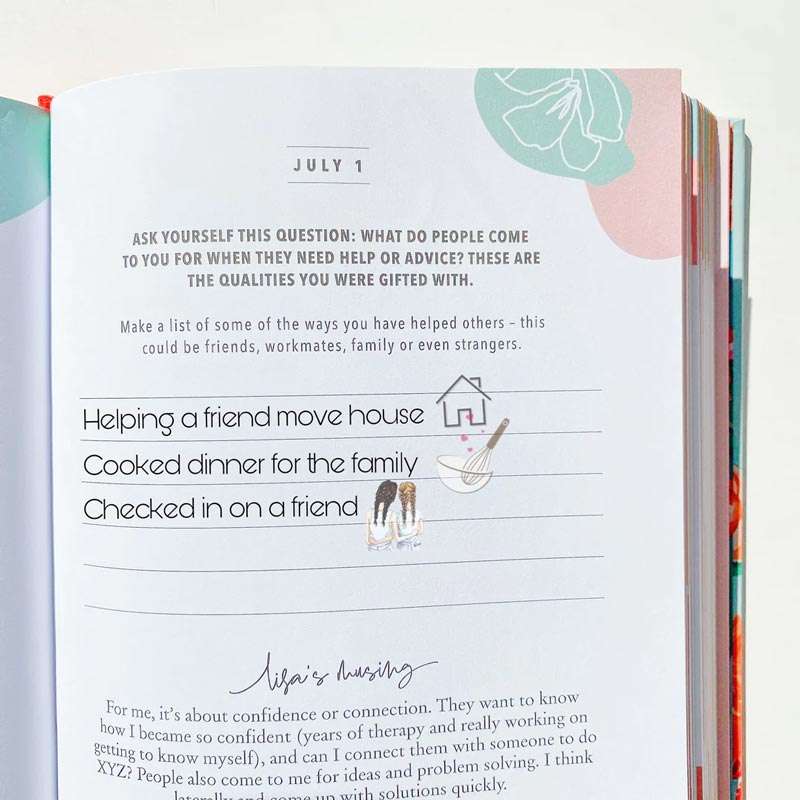 JULY 1
ASK YOURSELF THIS QUESTION: WHAT DO PEOPLE COME
TO YOU FOR WHEN THEY NEED HELP OR ADVICE? THESE ARE
THE QUALITIES YOU WERE GIFTED WITH.
Make a list of some of the ways you have helped others – this
could be friends, workmates, family or even strangers.
Helping a friend move house
Cooked dinner for the family
Checked in on a friend
lisa's musing
For me, it's about confidence or connection. They want to know
how I became so confident (years of therapy and really working on
getting to know myself), and can I connect them with someone to do
XYZ? People also come to me for ideas and problem solving. I think
laterally and come up with solutions quickly.